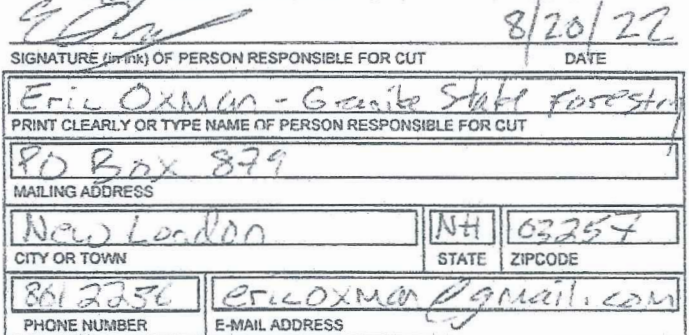 8/20/22
SIGNATURE (in ink) OF PERSON RESPONSIBLE FOR CUT DATE
Eric Oxman - Granite State Forestry
PRINT CLEARLY OR TYPE NAME OF PERSON RESPONSIBLE FOR CUT
PO Box 879
MAILING ADDRESS
New London NH 03257
CITY OR TOWN STATE ZIPCODE
ericoxman@gmail.com
PHONE NUMBER E-MAIL ADDRESS